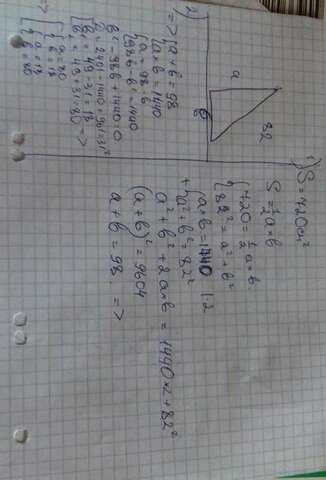 1) S = 720см²
S = ½ a×b
{720 = ½ a×b
{82² = a² + b²
{a×b = 1440 |·2
+ {a² + b² = 82²
a² + b² + 2a×b = 1440×2 + 82²
(a+b)² = 9604
a + b = 98 =>
a
82
b
2)
=> {a + b = 98
{a×b = 1440
{a = 98 - b
{98b - b² = 1440
b² - 98b + 1440 = 0
D = 2401 - 1440 = 961 = 31²
[b = 49 - 31 = 18
[b = 49 + 31 = 80 =>
=>
[{a = 80
{b = 18
[{a = 18
{b = 80